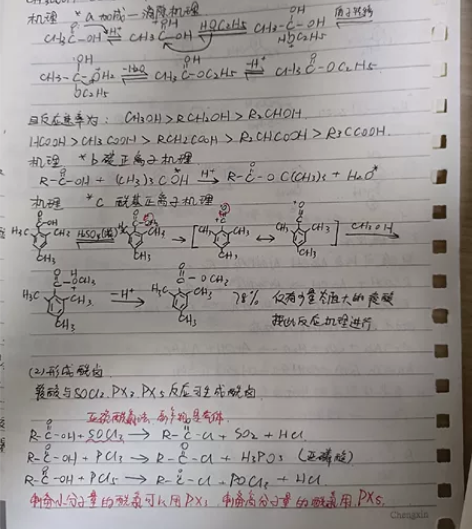 机理 *a 加成—消除机理
CH₃C-OH ⇌ H⁺ CH₃C-OH ⇌ HOC₂H₅ CH₃-C-OH 质子转移
CH₃-C-OH₂ ⇌ -H₂O CH₃C-OC₂H₅ ⇌ -H⁺ CH₃C-OC₂H₅
OC₂H₅
且反应速率为: CH₃OH>RCH₂OH>R₂CHOH
HCOOH>CH₃COOH>RCH₂COOH>R₂CHCOOH>R₃CCOOH.
机理 *b 碳正离子机理
R-C-OH + (CH₃)₃COH H⁺→ R-C-OC(CH₃)₃ + H₂O
机理 *C 酰基正离子机理
H₃C CH₃ H₂SO₄(浓) CH₃ CH₃ CH₃ CH₃OH
CH₃ CH₃ CH₃ CH₃
H₃C CH₃ -H⁺ → H₃C CH₃ 78% 仅有少量
CH₃ CH₃ 按此反应机理进行
(2)形成酰卤
羧酸与SOCl₂、PX₃、PX₅反应生成酰卤
R-C-OH + SOCl₂ → R-C-Cl + SO₂ + HCl
R-C-OH + PCl₃ → R-C-Cl + H₃PO₃ (亚磷酸)
R-C-OH + PCl₅ → R-C-Cl + POCl₃ + HCl
制备小分子量的酰氯可以用PX₃ 制备高分子量的酰氯用PX₅.
Chengxin